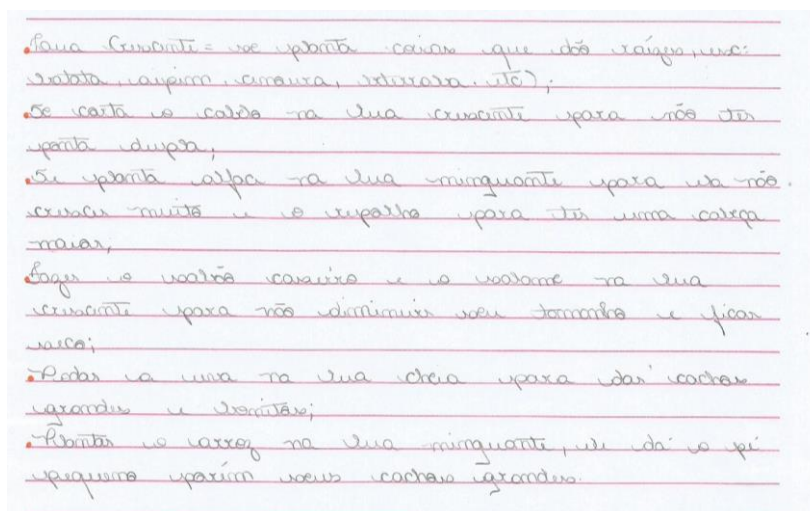 .Lua Crescente = se planta coisas que dão raízes, ex:
batata, aipim, cenoura, beterraba, etc);
.Se corta o cabelo na lua crescente para não ter
ponta dupla;
.Se planta alface na lua minguante para ela não
crescer muito e o repolho para ter uma cabeça
maior;
.Fazer o sabão caseiro e o salame na lua
crescente para não diminuir seu tamanho e ficar
seco;
.Podar a uva na lua cheia para dar cachos
grandes e bonitos;
.Plantar o arroz na lua minguante, ele dá o pé
pequeno porém seus cachos grandes.